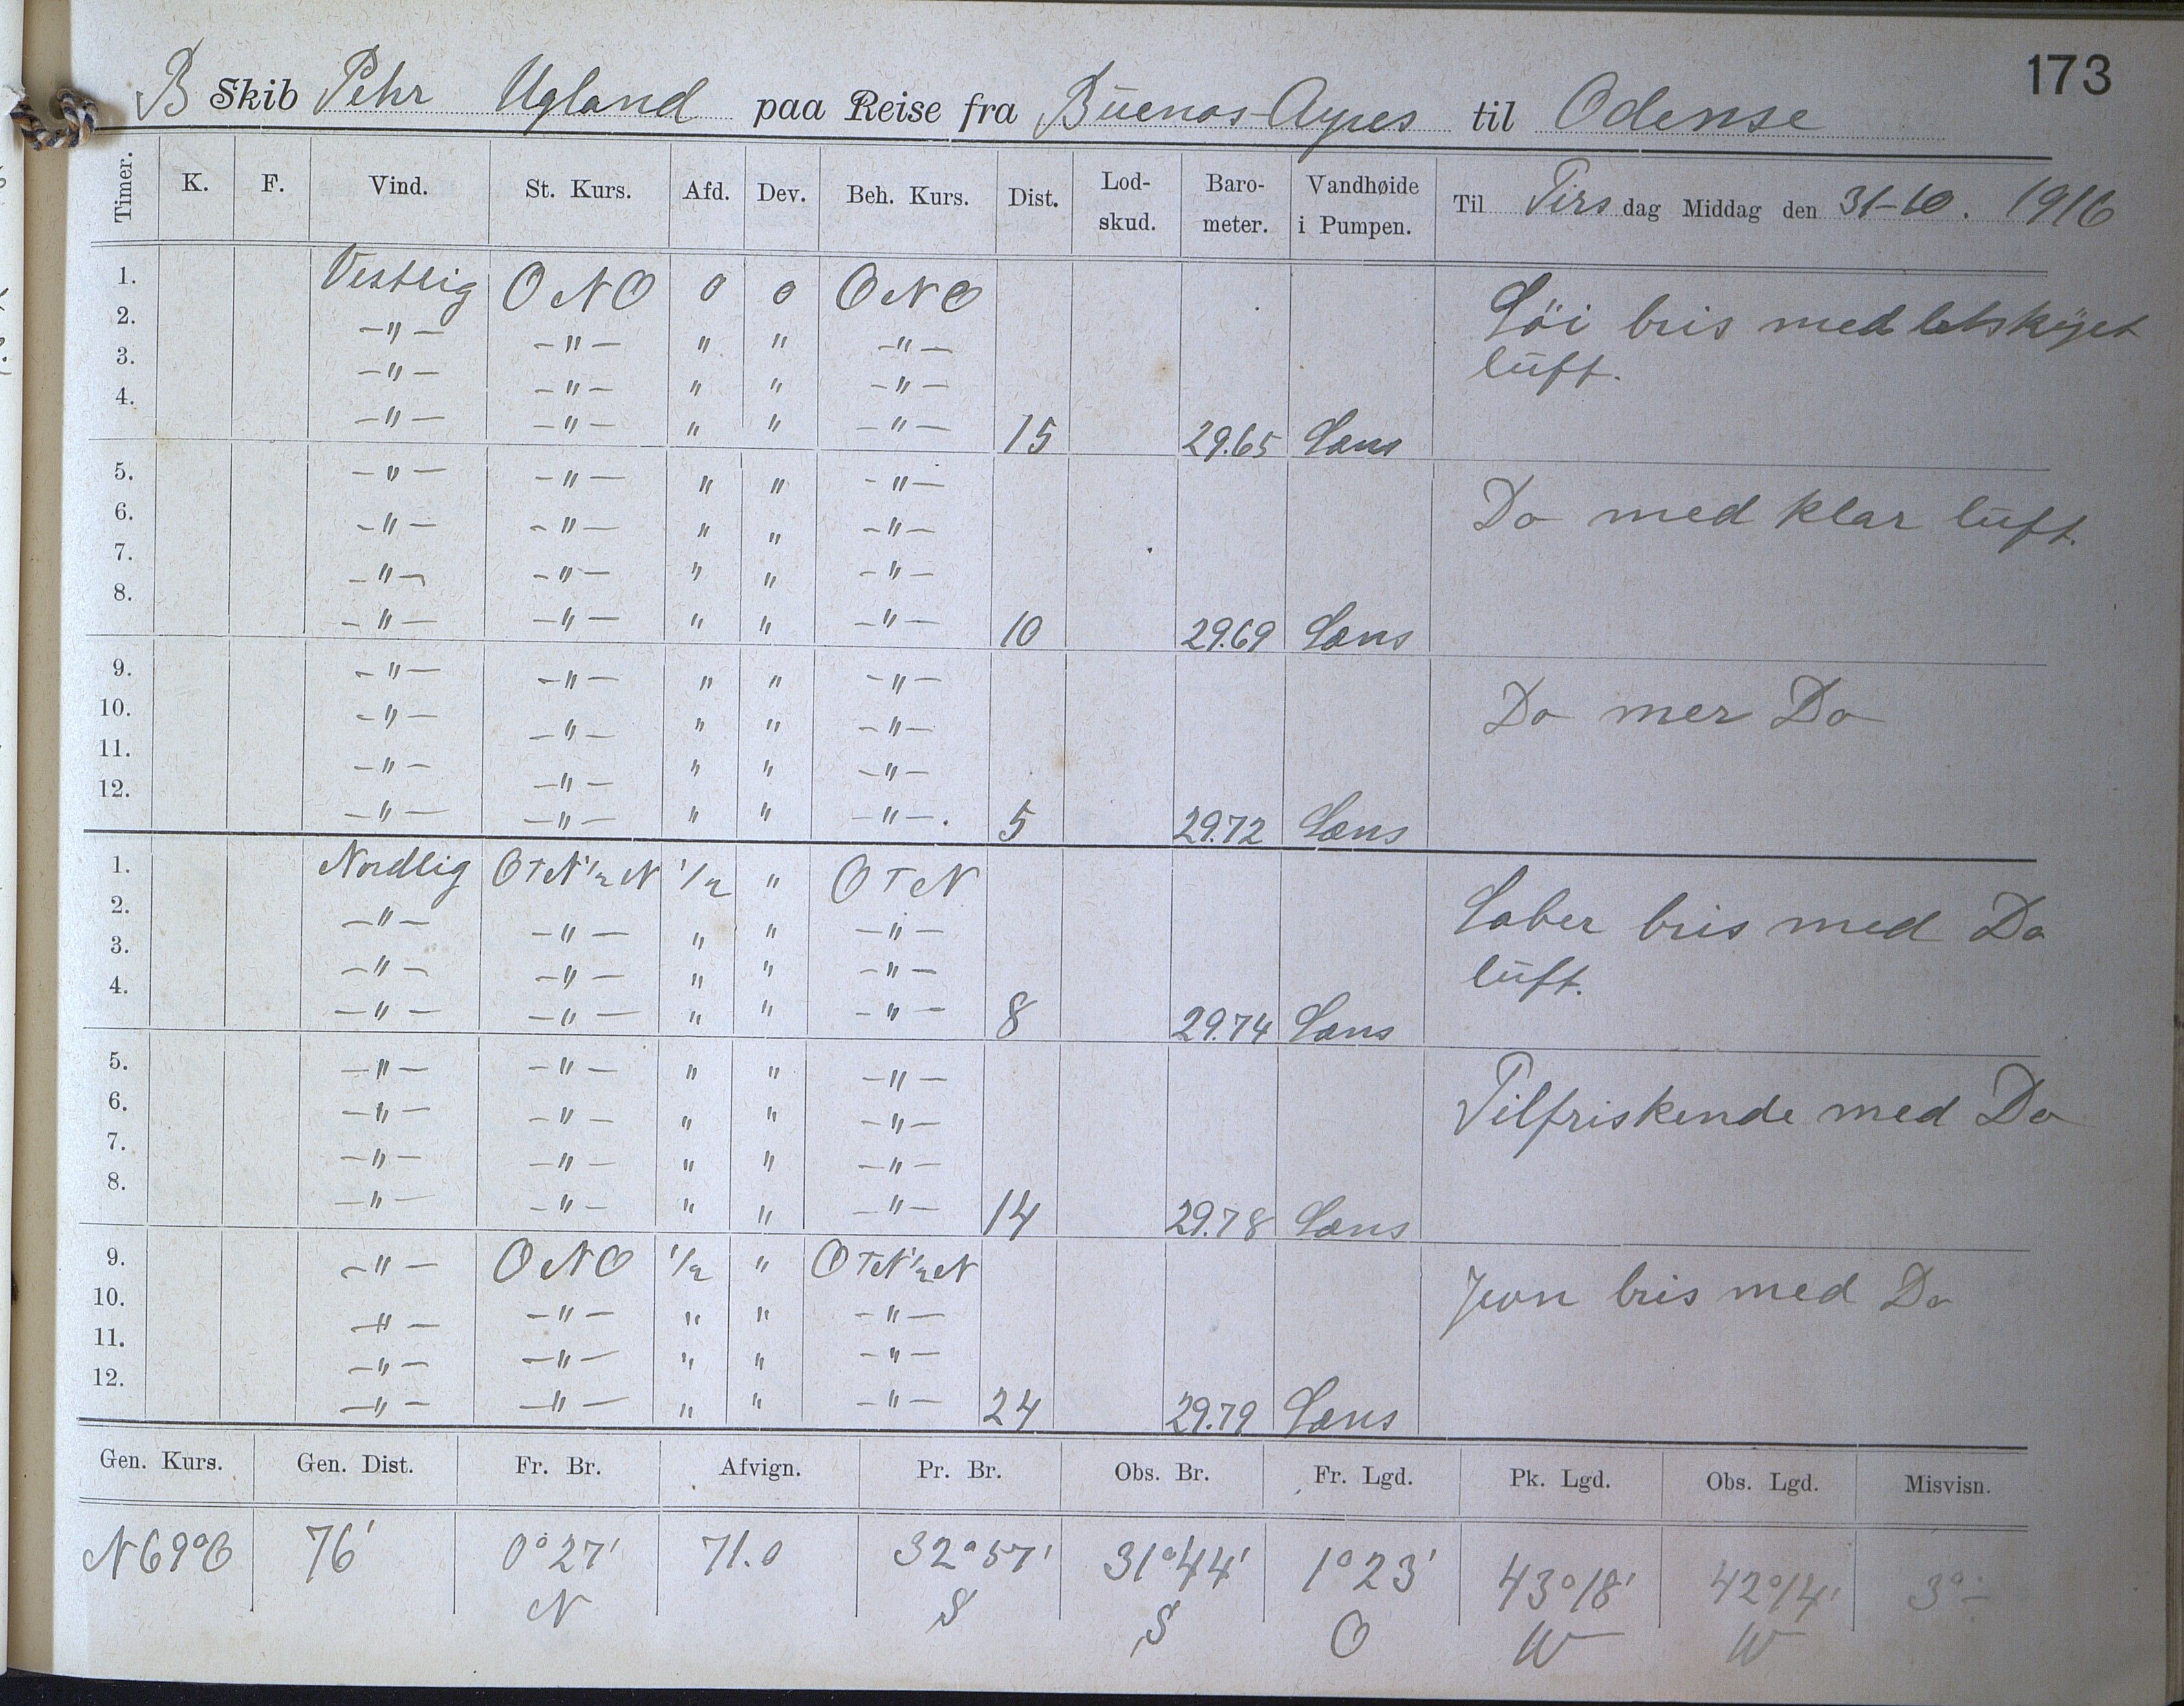 173
B Skib Pehr Ugland paa Reise fra Buenos-Ayres til Odense
Timer. K. F. Vind. St. Kurs. Afd. Dev. Beh. Kurs. Dist. Lod-skud. Baro-meter. Vandhøide i Pumpen. Til Tirsdag Middag den 31-10. 1916
1. Vestlig ONO 0 0 ONO Løi bris med letskyet
2. -"- -"- " " -"- luft.
3. -"- -"- " " -"-
4. -"- -"- " " -"- 15 29.65 Læns
5. -"- -"- " " -"- Do med klar luft.
6. -"- -"- " " -"-
7. -"- -"- " " -"-
8. -"- -"- " " -"- 10 29.69 Læns
9. -"- -"- " " -"- Do mer Do
10. -"- -"- " " -"-
11. -"- -"- " " -"-
12. -"- -"- " " -"-. 5 29.72 Læns
1. Nordlig OTN1/2N 1/2 " OTN Laber bris med Do
2. -"- -"- " " -"- luft.
3. -"- -"- " " -"-
4. -"- -"- " " -"- 8 29.74 Læns
5. -"- -"- " " -"- Tilfriskende med Do
6. -"- -"- " " -"-
7. -"- -"- " " -"-
8. -"- -"- " " -"- 14 29.78 Læns
9. -"- ONO 1/2 " OTN1/2N Jevn bris med Do
10. -"- -"- " " -"-
11. -"- -"- " " -"-
12. -"- -"- " " -"- 24 29.79 Læns
Gen. Kurs. Gen. Dist. Fr. Br. Afvign. Pr. Br. Obs. Br. Fr. Lgd. Pk. Lgd. Obs. Lgd. Misvisn.
N69°O 76' 0°27' 71.0 32°57' 31°44' 1°23' 43°18' 42°14' 3°-
N S S O W W